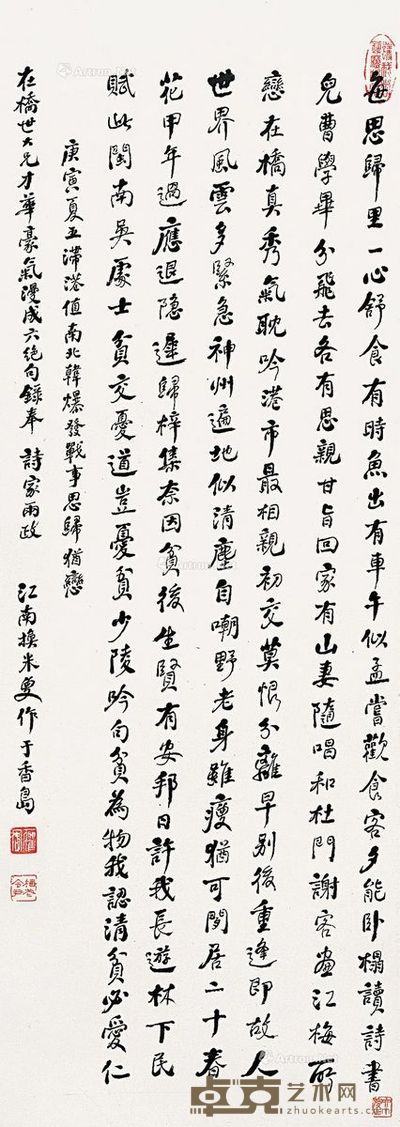 每思歸里一心舒食有時魚出有車午似孟嘗歡食客多能卧榻讀詩書
兒曹學畢分飛去各有思親甘旨回家有山妻隨唱和杜門謝客畫江梅
戀在橋真秀氣耽吟港市最相親初交莫恨分離早別後重逢即故人
世界風雲多緊急神州遍地似清塵自嘲野老身雖瘦猶可閑居二十春
花甲年過應退隐遲歸梓集奈因貧後生賢有安邦日許我長遊林下民
賦此閩南吳處士貧交憂道豈憂貧少陵吟句貧為物我認清貧必愛仁
庚寅夏五滯港值南北韓爆發戰事思歸猶戀
在橋世大兄才華豪氣漫成六絕句錄奉 詩家兩政 江南換米叟作于香島
Artron.Net
卓克艺术网
zhuokearts.com